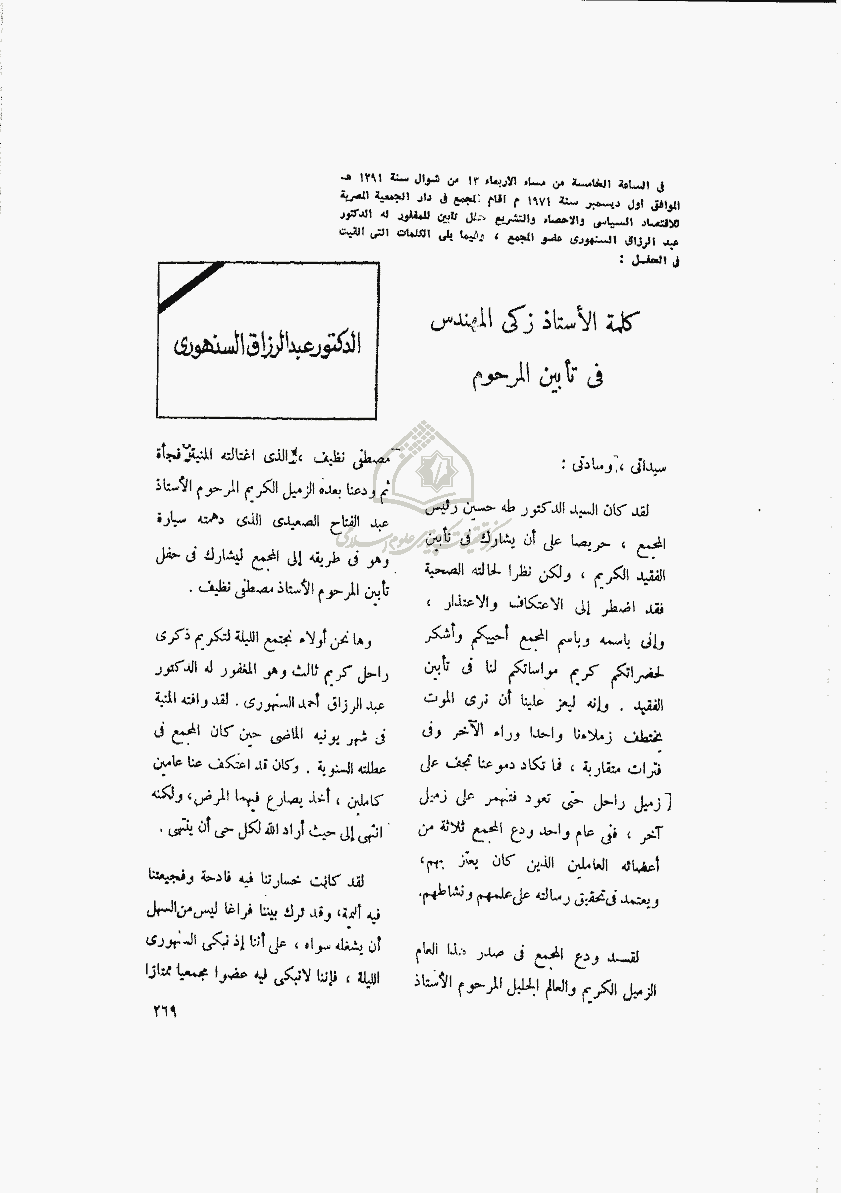 في الساعة الخامسة من مساء الأربعاء ١٣ من شوال سنة ١٣٩١ هـ
الموافق أول ديسمبر سنة ١٩٧١ م أقام المجمع في دار الجمعية المصرية
للاقتصاد السياسي والاحصاء والتشريع حفل تأبين للمغفور له الدكتور
عبد الرزاق السنهورى عضو المجمع ، وفيما يلى الكلمات التى القيت
في الحفل :
كلمة الأستاذ زكى المهندس
فى تأبين المرحوم
الدكتور عبد الرزاق السنهورى
سيداتى ، وسادتى :
لقد كان السيد الدكتور طه حسين رئيس
المجمع ، حريصا على أن يشارك فى تأبين
الفقيد الكريم ، ولكن نظرا لحالته الصحية
فقد اضطر إلى الاعتكاف والاعتذار ،
وإنى باسمه وباسم المجمع أحييكم وأشكر
لحضراتكم كريم مواساتكم لنا فى تأبين
الفقيد . وإنه ليعز علينا أن نرى الموت
يختطف زملاءنا واحدا وراء الآخر وفى
فترات متقاربة ، فما تكاد دموعنا تجف على
زميل راحل حتى تعود فتنهمر على زميل
آخر ، ففى عام واحد ودع المجمع ثلاثة من
أعضائه العاملين الذين كان يعتز بهم،
ويعتمد فى تحقيق رسالته على علمهم ونشاطهم.
لقد ودع المجمع فى صدر هذا العام
الزميل الكريم والعالم الجليل المرحوم الأستاذ
مصطفى نظيف ، الذى اغتالته المنية فجأة
ثم ودعنا بعده الزميل الكريم المرحوم الأستاذ
عبد الفتاح الصعيدى الذى دهمته سيارة
وهو فى طريقه إلى المجمع ليشارك فى حفل
تأبين المرحوم الأستاذ مصطفى نظيف .
وها نحن أولاء نجتمع الليلة لتكريم ذكرى
راحل كريم ثالث وهو المغفور له الدكتور
عبد الرزاق أحمد السنهورى . لقد وافته المنية
فى شهر يونيه الماضى حين كان المجمع فى
عطلته السنوية . وكان قد اعتكف عنا عامين
كاملين ، أخذ يصارع فيهما المرض، ولكنه
انتهى إلى حيث أراد الله لكل حى أن ينتهى .
لقد كانت خسارتنا فيه فادحة وفجيعتنا
فيه أليمة، وقد ترك بيننا فراغا ليس من السهل
أن يشغله سواه ، على أننا إذ نبكى السنهورى
الليلة ، فإننا لانبكى فيه عضوا مجمعيا ممتازا
٢٦٩